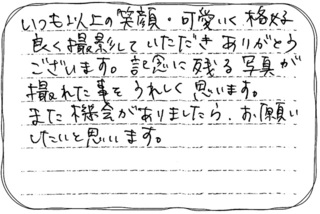 いつも以上の笑顔・可愛いく格好
良く撮影していただきありがとう
ございます。記念に残る写真が
撮れた事をうれしく思います。
また機会がありましたら、お願い
したいと思います。